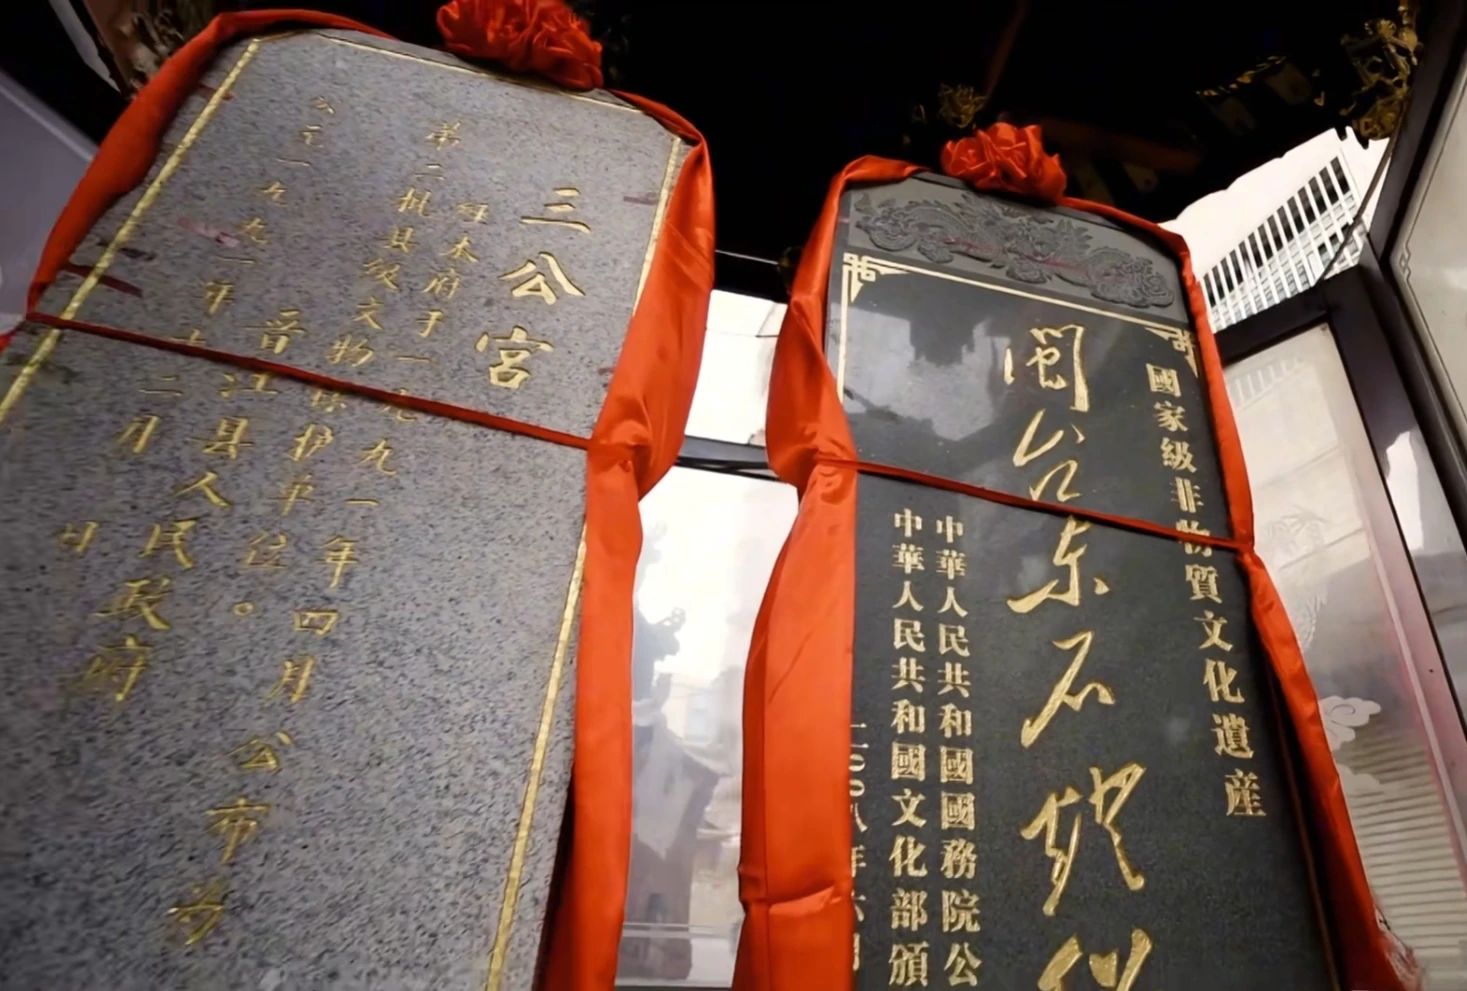 國家級非物質文化遺産
闽台东石灯
中華人民共和國國務院公
中華人民共和國文化部頒
二00八年六月
三公宮
经本府于一九九一年四月公布为
第二批县级文物保护单位。
晋江县人民政府
公元一九九一年十二月 日